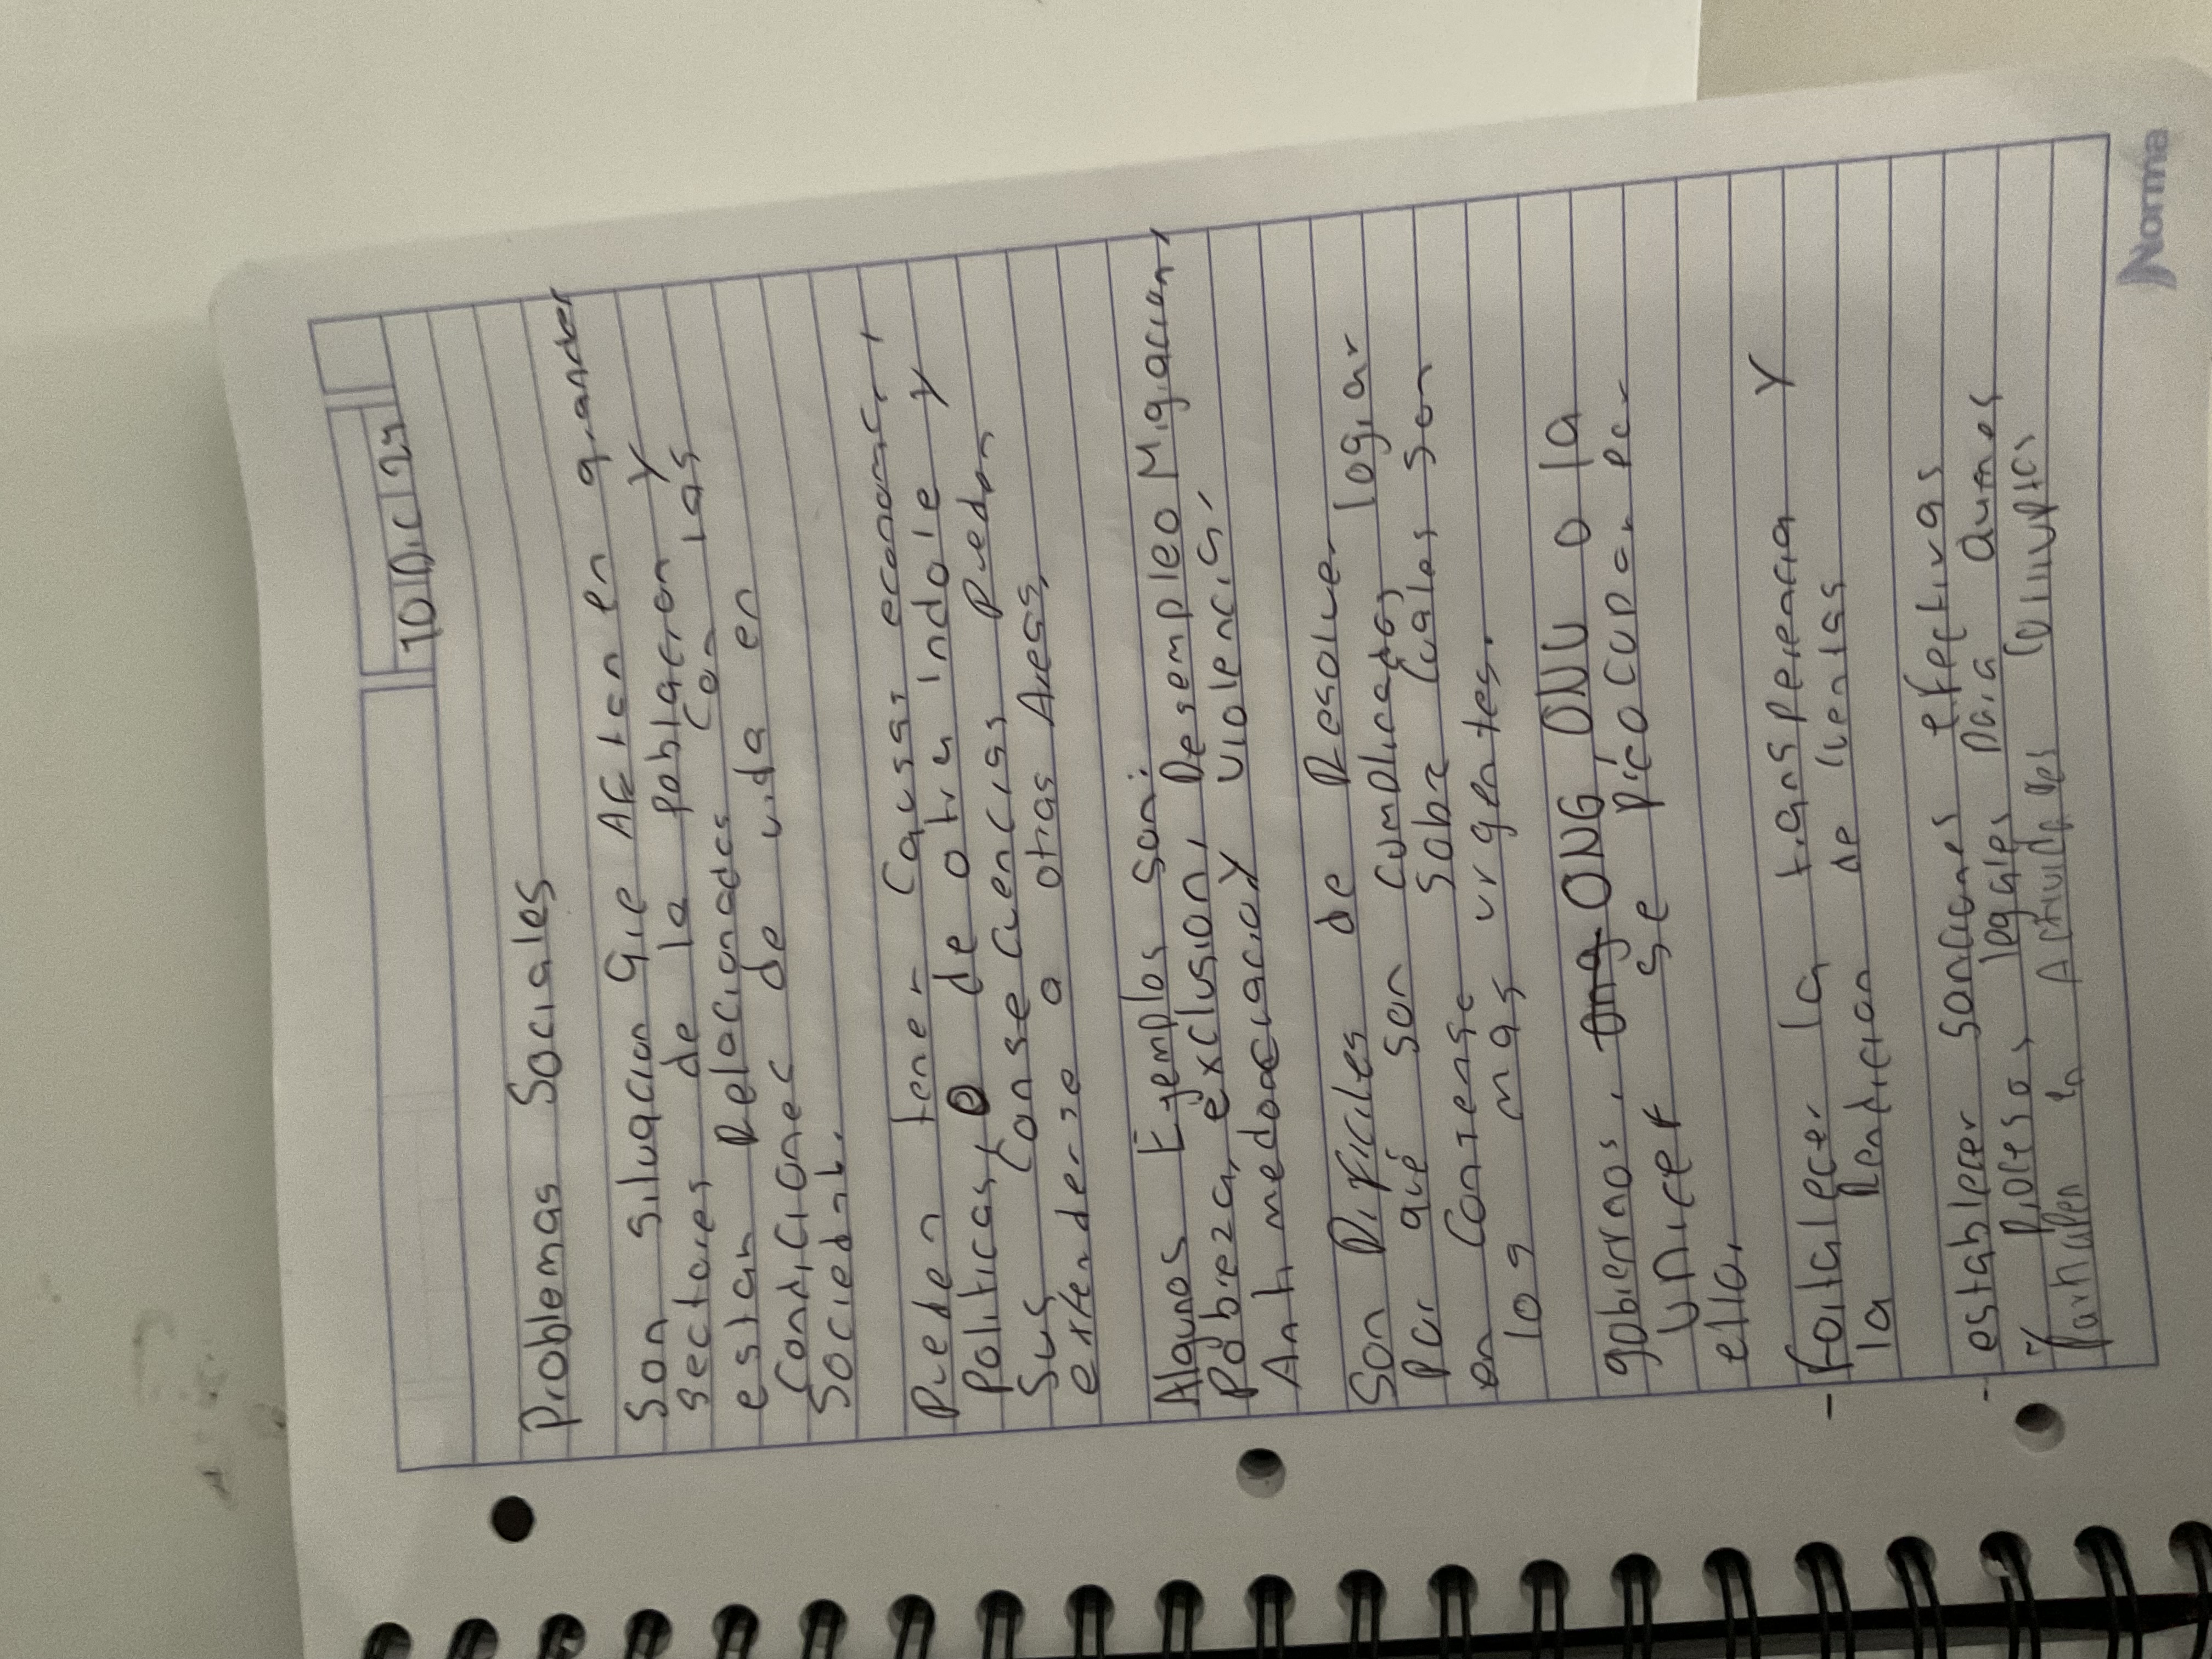 10 Dic 24
Problemas Sociales
Son situacion Que Afectan en grander
sectores de la poblacion y
estan Relacionadas con las
Condiciones de vida en
Sociedad.
Pueden tener Causas economic,
Politicas, o de otra indole y
Sus Consecuencias Pueden
extenderse a otras Areas.
Algunos Ejemplos son:
Pobreza, exclusion, Desempleo Migacion,
y violencia,
Son Dificiles de Resolver
Por qué son complicados lograr
en Consenso sobre Cuales son
los mas urgentes.
gobiernos, ONG, ONU o la
UNICEF se preocupan por
ello.
- Fortalecer la tansperencia y
la Rendicion de Cuentas
- establecer sanciones efectivas
y Proceso, legales para quines
Participen en Actividades Curruptas
Norma